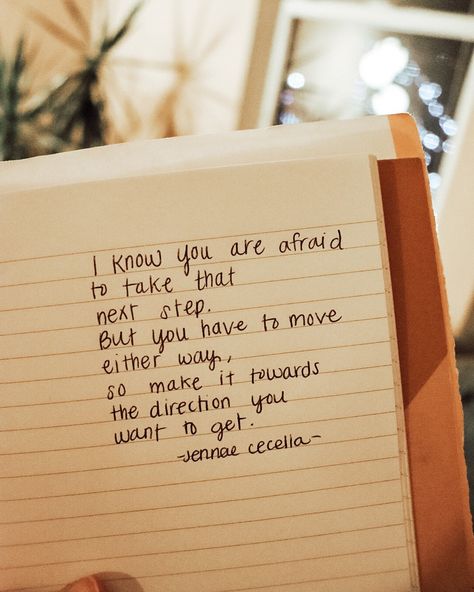 I know you are afraid
to take that
next step.
But you have to move
either way,
so make it towards
the direction you
want to get.
-Jennae Cecelia-